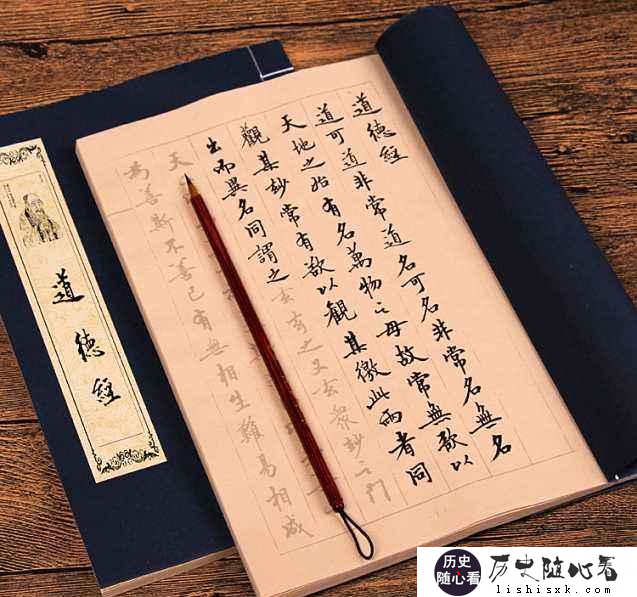 道德經
道可道非常道名可名非常名無名
天地之始有名萬物之母故常無欲以
觀其妙常有欲以觀其徼此兩者同
出而異名同謂之玄玄之又玄眾妙之門
天
為善斯不善已有無相生難易相成
道德經
历史随心看
历史随心看
lishisxk.com